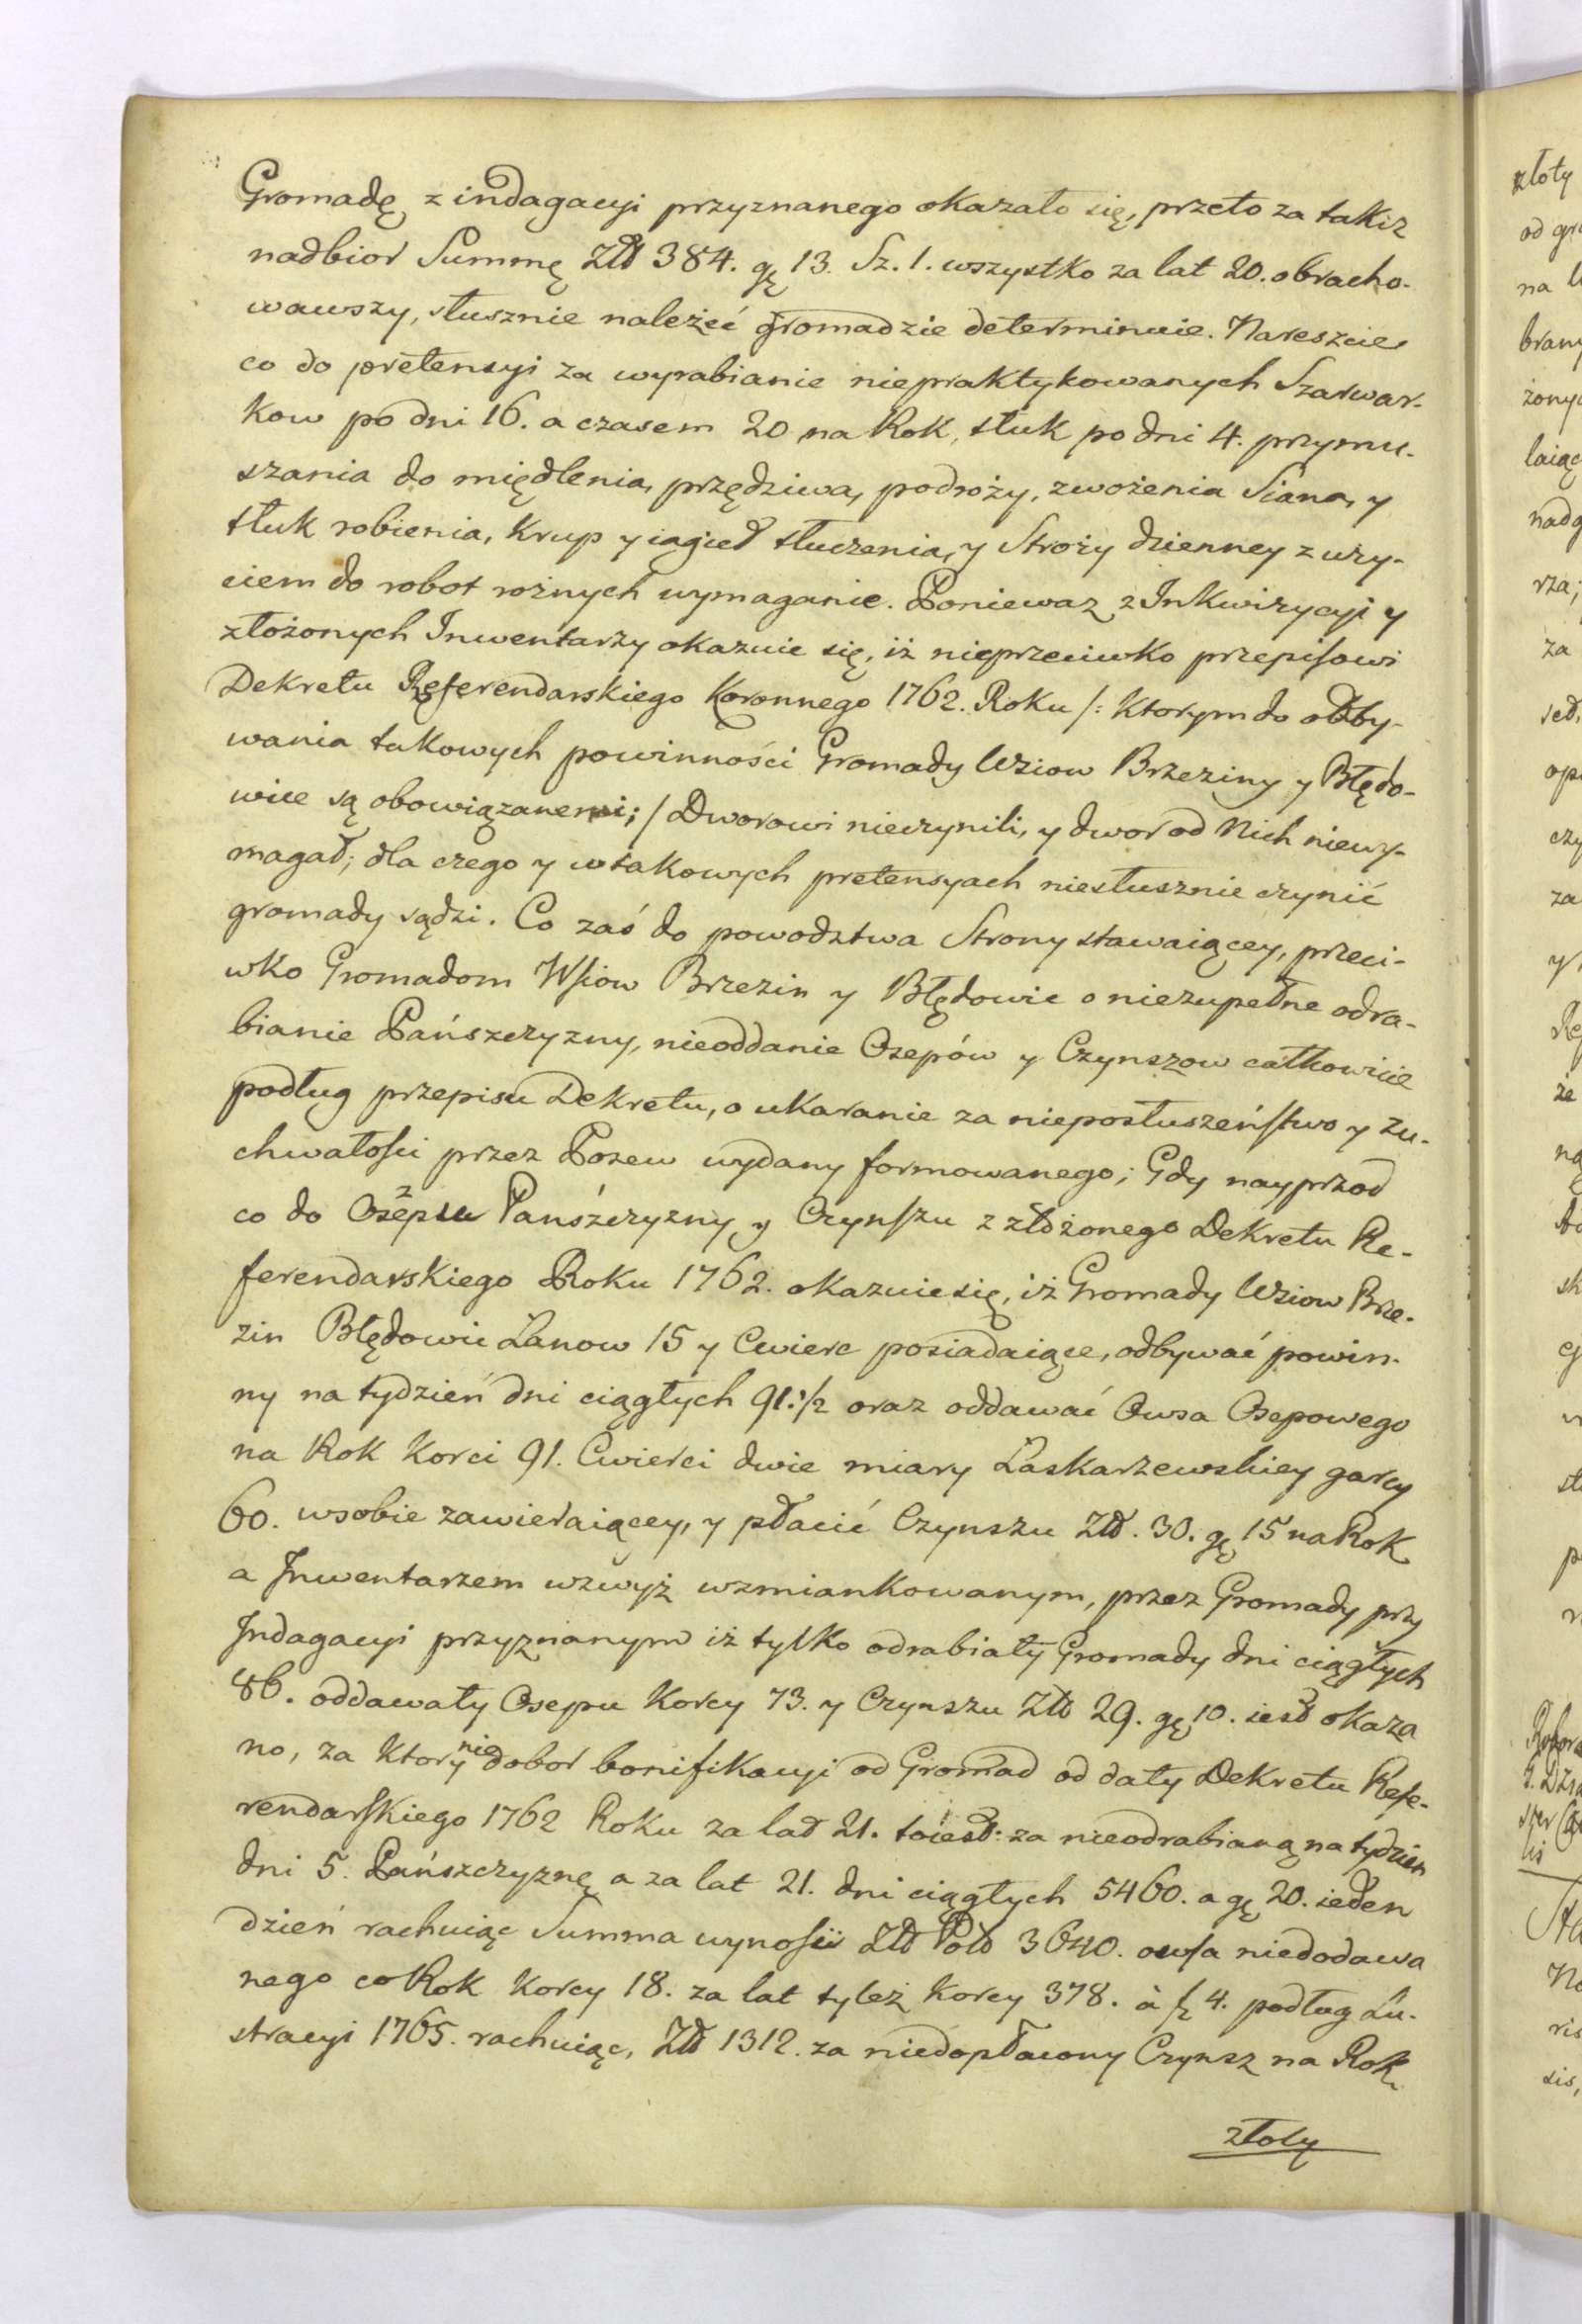 Gromadę z indagacyi przyznanego okazało się, przeto za takiż
nadbior Summę Złł 384. gę 13. Sz. 1. wszystko za lat 20. obracho-
wawszy, słusznie należeć gromadzie determinuie. Nareszcie
co do pretensyi za wyrabianie niepraktykowanych Szarwar-
kow po dni 16. a czasem 20 na Rok, tłuk po dni 4. przymu-
szania do międlenia, przędziwa, podroży, zwożenia Siana, y
tłuk robienia, Krup y iagieł tłuczenia, y Stroży dzienney z uży-
ciem do robot rożnych wymaganie. Poniewaz z Inkwizycyi y
złożonych Inwentarzy okazuie się, iż nieprzeciwko przepisowi
Dekretu Referendarskiego Koronnego 1762. Roku /: Ktorym do odby-
wania takowych powinności Gromady Wsiow Brzeziny y Błędo-
wice są obowiązanemi; / Dworowi nieczynili, y dwor od Nich niewy-
magał; dla czego y w takowych pretensyach niesłusznie czynić
gromady sądzi. Co zaś do powodztwa Strony stawaiącey, przeci-
wko Gromadom Wsiow Brzezin y Błędowic o niezupełne odra-
bianie Pańszczyzny, nieoddanie Osepów y Czynszow całkowicie
podług przepisu Dekretu, o ukaranie za nieposłuszeństwo y zu-
chwałości przez Pozew wydany formowanego; Gdy nayprzod
co do Osepu Pańszczyzny y Czynszu z złożonego Dekretu Re-
ferendarskiego Roku 1762. okazuie się, iż Gromady Wsiow Brze-
zin Błędowic Łanow 15 y Cwierc posiadaiące, odbywać powin-
ny na tydzień dni ciągłych 91.1/2 oraz oddawać Owsa Osepowego
na Rok Korci 91. Cwierci dwie miary Łaskarzewskiey garcy
60. wsobie zawieraiącey, y płacić Czynszu Złł. 30. gę 15 na Rok
a Inwentarzem wzwyż wzmiankowanym, przez Gromady przy
Indagacyi przyznanym iż tylko odrabiały Gromady dni ciągłych
86. oddawały Osepu Korcy 73. y Czynszu Złł 29. gę 10. iest okaza
no, za Ktory niedobor bonifikacyi od Gromad od daty Dekretu Refe-
rendarskiego 1762 Roku za lat 21. toiest: za nieodrabianą na tydzień
dni 5. Pańszczyznę a za lat 21. dni ciągłych 5460. a gę 20. ieden
dzień rachuiąc Summa wynosi Złł Pol 3640. owsa niedodawa
nego co Rok Korcy 18. za lat tyleż Korcy 378. à fz 4. podług Lu-
stracyi 1765. rachuiąc, Złł 1312. za niedopłacony Czynsz na Rok
złoty